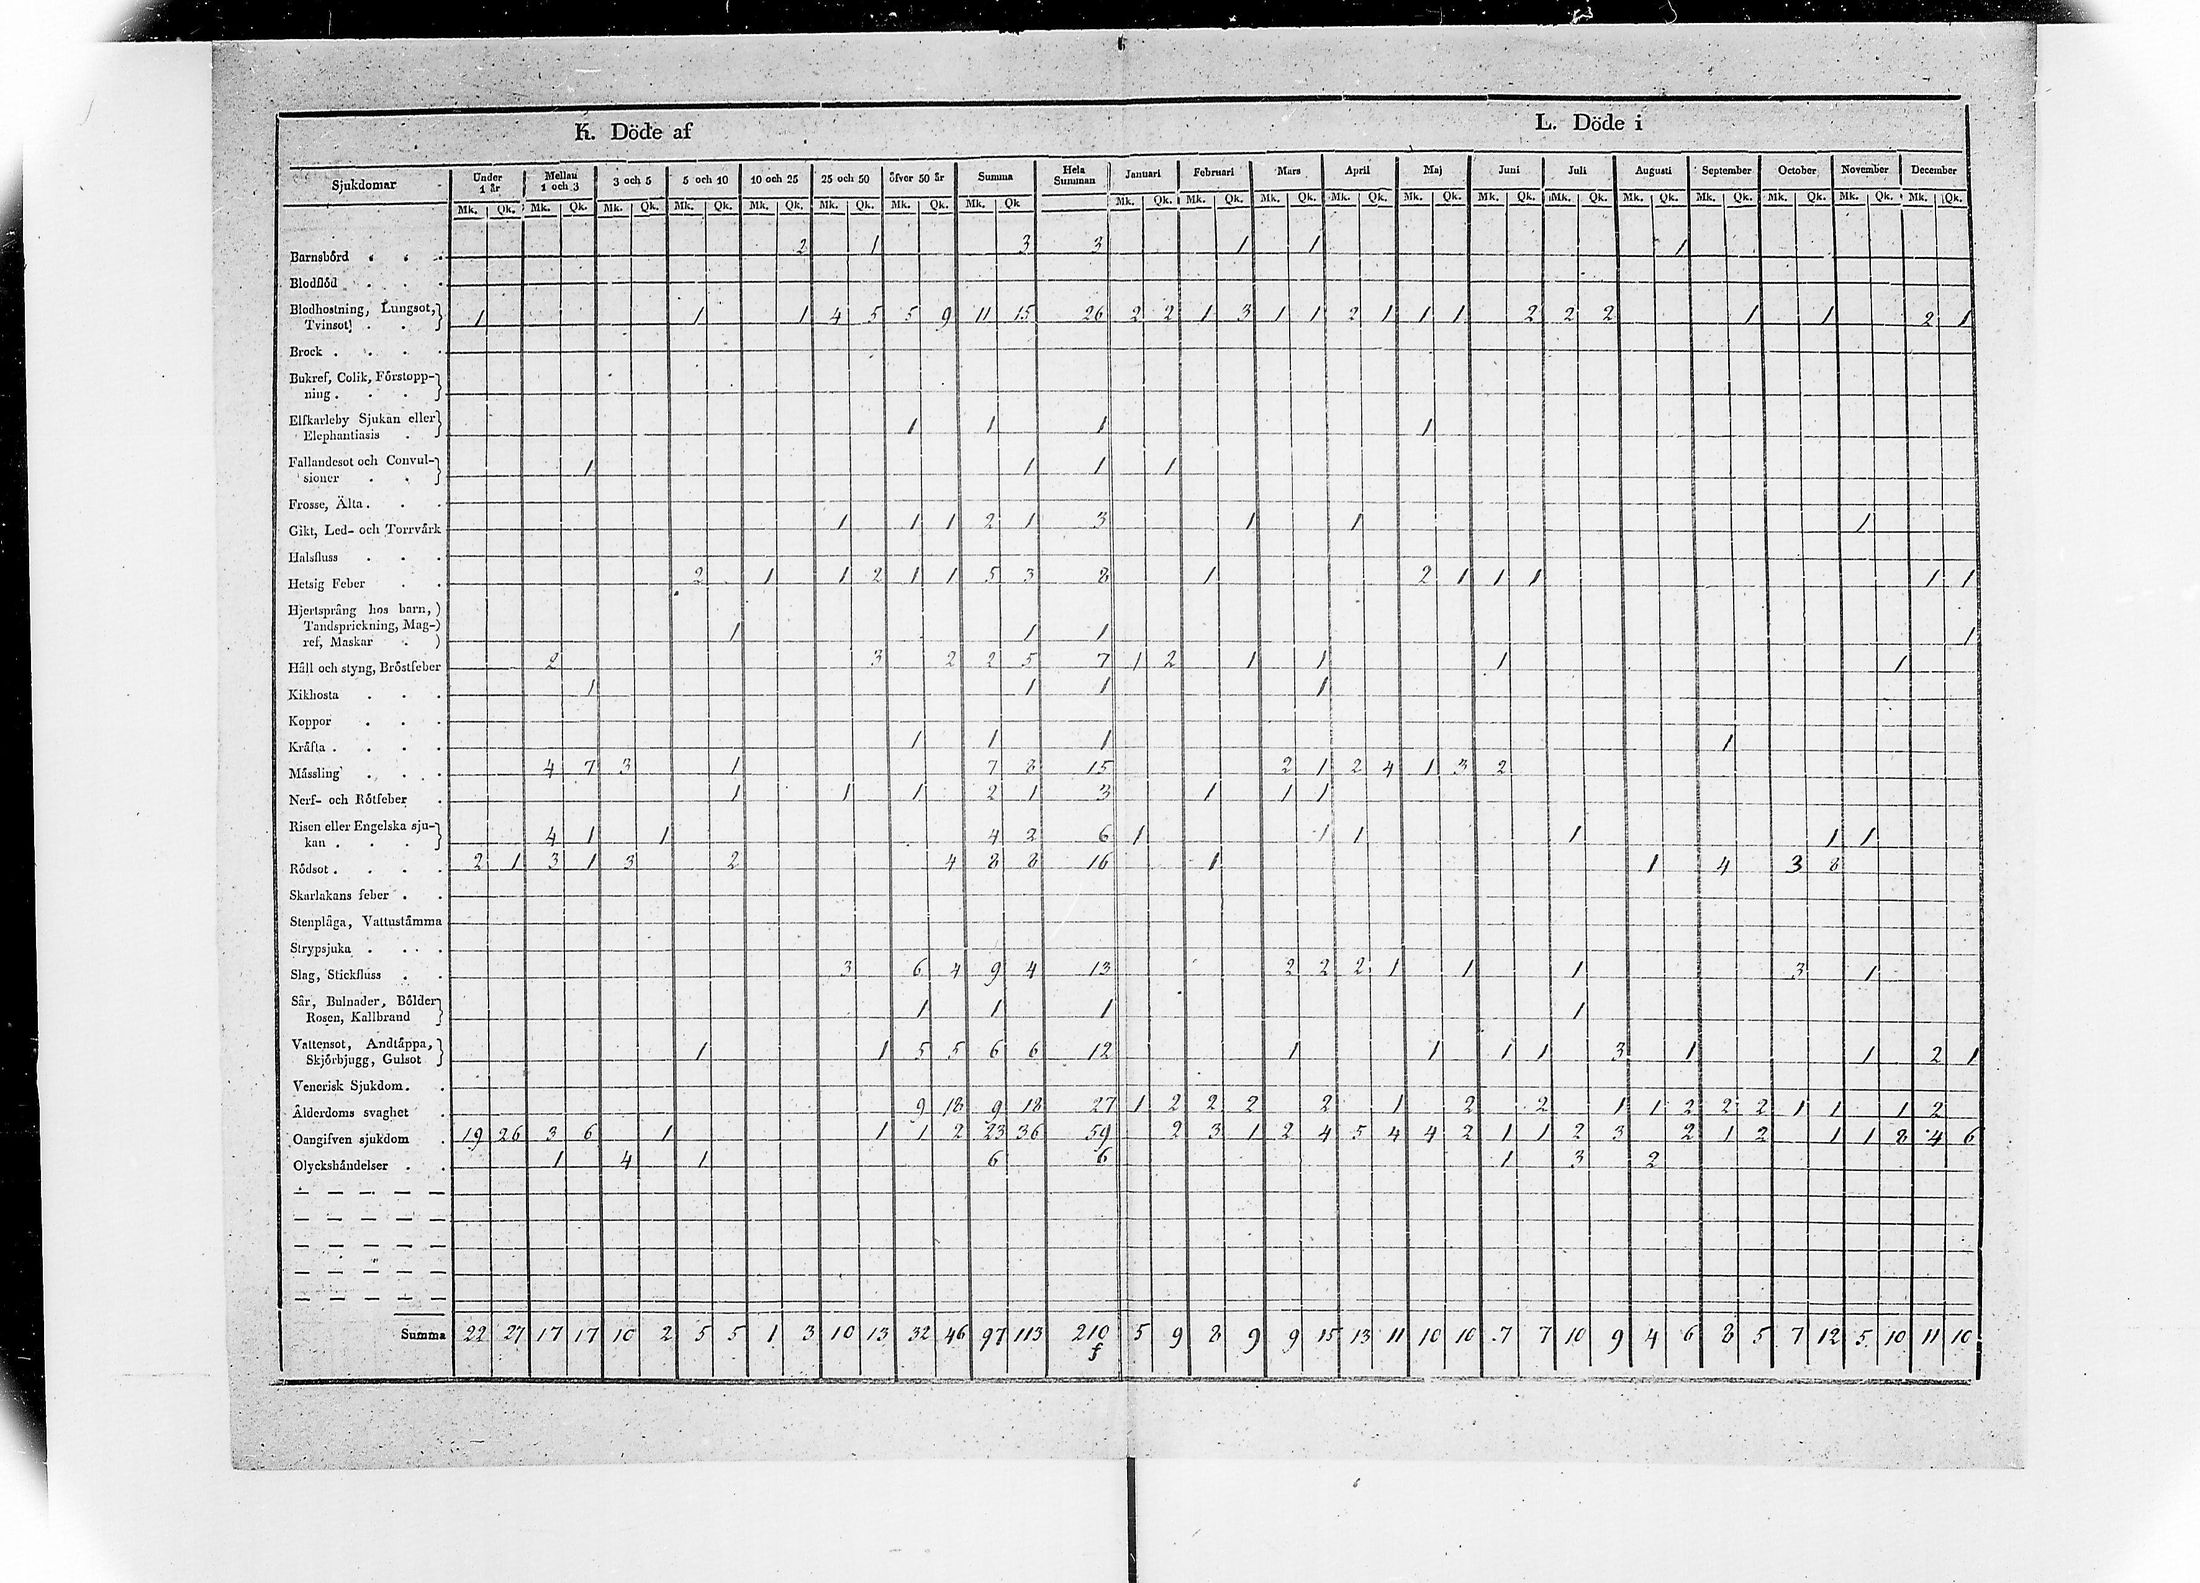 K. Döde af L. Döde i
Sjukdomar Under 1 år Mellan 1 och 3 3 och 5 5 och 10 10 och 25 25 och 50 öfver 50 år Summa Hela Summan Januari Februari Mars April Maj Juni Juli Augusti September October November December
Mk. Qk. Mk. Qk. Mk. Qk. Mk. Qk. Mk. Qk. Mk. Qk. Mk. Qk. Mk. Qk Mk. Qk. Mk. Qk. Mk. Qk. Mk. Qk. Mk. Qk. Mk. Qk. Mk. Qk. Mk. Qk. Mk. Qk. Mk. Qk. Mk. Qk. Mk. Qk.
Barnsbörd . . . 2 1 3 3 1 1 1
Blodflöd . . .
Blodhostning, Lungsot,
Tvinsot . . 1 1 1 4 5 5 9 11 15 26 2 2 1 3 1 1 2 1 1 1 2 2 2 1 1 2 1
Brock . . . .
Bukref, Colik, Förstopp-
ning . . .
Elfkarleby Sjukan eller
Elephantiasis . 1 1 1 1
Fallandesot och Convul-
sioner . . 1 1 1 1
Frosse, Älta . . .
Gikt, Led- och Torrvärk 1 1 1 2 1 3 1 1 1
Halsfluss . . .
Hetsig Feber . . 2 1 1 2 1 1 5 3 8 1 2 1 1 1 1 1
Hjertsprång hos barn,
Tandsprickning, Mag-
ref, Maskar . 1 1 1 1
Håll och styng, Bröstfeber 2 3 2 2 5 7 1 2 1 1 1 1
Kikhosta . . . 1 1 1 1
Koppor . . .
Kräfta . . . . 1 1 1 1
Mässling . . . 4 7 3 1 7 8 15 2 1 2 4 1 3 2
Nerf- och Rötfeber . 1 1 1 2 1 3 1 1 1
Risen eller Engelska sju-
kan . . . 4 1 1 4 2 6 1 1 1 1 1 1
Rödsot . . . . 2 1 3 1 3 2 4 8 8 16 1 1 4 3 8
Skarlakans feber . .
Stenplåga, Vattustämma
Strypsjuka . . . .
Slag, Stickfluss . . 3 6 4 9 4 13 2 2 2 1 1 1 3 1
Sår, Bulnader, Bölder
Rosen, Kallbrand 1 1 1 1
Vattensot, Andtäppa,
Skjörbjugg, Gulsot 1 1 5 5 6 6 12 1 1 1 1 3 1 1 2 1
Venerisk Sjukdom . .
Ålderdoms svaghet . 9 18 9 18 27 1 2 2 2 2 1 2 2 1 1 2 2 2 1 1 1 2
Oangifven sjukdom . 19 26 3 6 1 1 1 2 23 36 59 2 3 1 2 4 5 4 4 2 1 1 2 3 2 1 2 1 1 8 4 6
Olyckshändelser . . 1 4 1 6 6 1 3 2
Summa 22 27 17 17 10 2 5 5 1 3 10 13 32 46 97 113 210 5 9 8 9 9 15 13 11 10 10 7 7 10 9 4 6 8 5 7 12 5 10 11 10